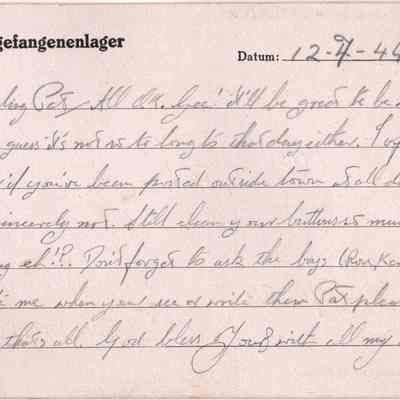 gefangenenlager
Datum: 12-7-44
Pat, All OK. Gee! it'll be great to be
guess it's not so long to that day either. I
if you've been posted outside town at all
sincerely not. Still clean your buttons
eh!? Don't forget to ask the boys (Ron, Ken
me when you see or write them Pat
that's all. God bless Yours with all my